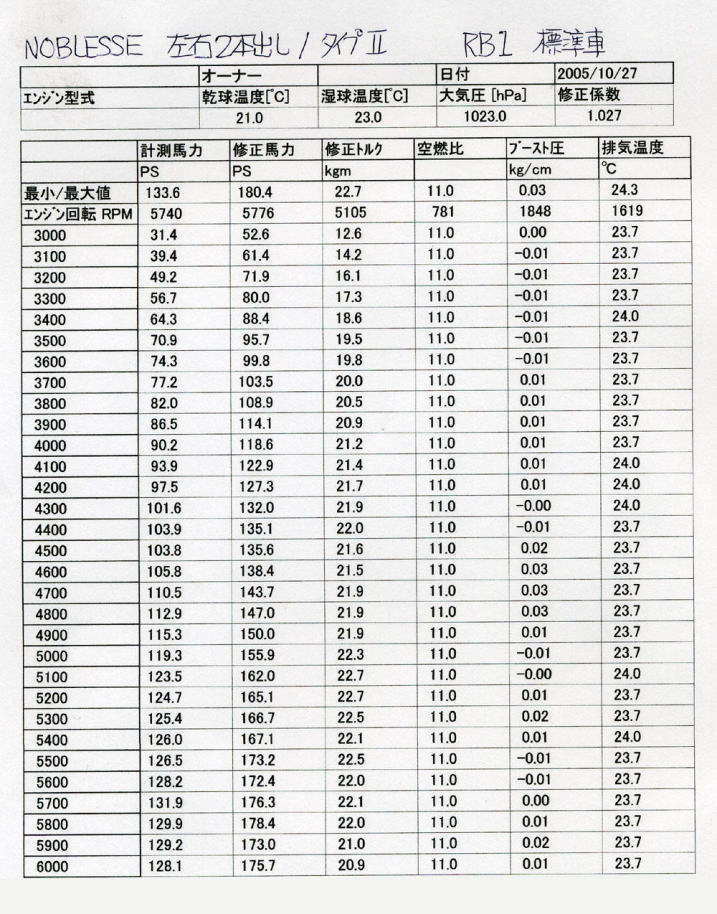 NOBLESSE 左右2本出し / タイプⅡ RB1 標準車
オーナー 日付 2005/10/27
エンジン型式 乾球温度[℃] 湿球温度[℃] 大気圧 [hPa] 修正係数
21.0 23.0 1023.0 1.027
計測馬力 修正馬力 修正トルク 空燃比 ブースト圧 排気温度
PS PS kgm kg/cm ℃
最小/最大値 133.6 180.4 22.7 11.0 0.03 24.3
エンジン回転 RPM 5740 5776 5105 781 1848 1619
3000 31.4 52.6 12.6 11.0 0.00 23.7
3100 39.4 61.4 14.2 11.0 -0.01 23.7
3200 49.2 71.9 16.1 11.0 -0.01 23.7
3300 56.7 80.0 17.3 11.0 -0.01 23.7
3400 64.3 88.4 18.6 11.0 -0.01 24.0
3500 70.9 95.7 19.5 11.0 -0.01 23.7
3600 74.3 99.8 19.8 11.0 -0.01 23.7
3700 77.2 103.5 20.0 11.0 0.01 23.7
3800 82.0 108.9 20.5 11.0 0.01 23.7
3900 86.5 114.1 20.9 11.0 0.01 23.7
4000 90.2 118.6 21.2 11.0 0.01 23.7
4100 93.9 122.9 21.4 11.0 0.01 24.0
4200 97.5 127.3 21.7 11.0 0.01 24.0
4300 101.6 132.0 21.9 11.0 -0.00 24.0
4400 103.9 135.1 22.0 11.0 -0.01 23.7
4500 103.8 135.6 21.6 11.0 0.02 23.7
4600 105.8 138.4 21.5 11.0 0.03 23.7
4700 110.5 143.7 21.9 11.0 0.03 23.7
4800 112.9 147.0 21.9 11.0 0.03 23.7
4900 115.3 150.0 21.9 11.0 0.01 23.7
5000 119.3 155.9 22.3 11.0 -0.01 23.7
5100 123.5 162.0 22.7 11.0 -0.00 24.0
5200 124.7 165.1 22.7 11.0 0.01 23.7
5300 125.4 166.7 22.5 11.0 0.02 23.7
5400 126.0 167.1 22.1 11.0 0.01 24.0
5500 126.5 173.2 22.5 11.0 -0.01 23.7
5600 128.2 172.4 22.0 11.0 -0.01 23.7
5700 131.9 176.3 22.1 11.0 0.00 23.7
5800 129.9 178.4 22.0 11.0 0.01 23.7
5900 129.2 173.0 21.0 11.0 0.02 23.7
6000 128.1 175.7 20.9 11.0 0.01 23.7